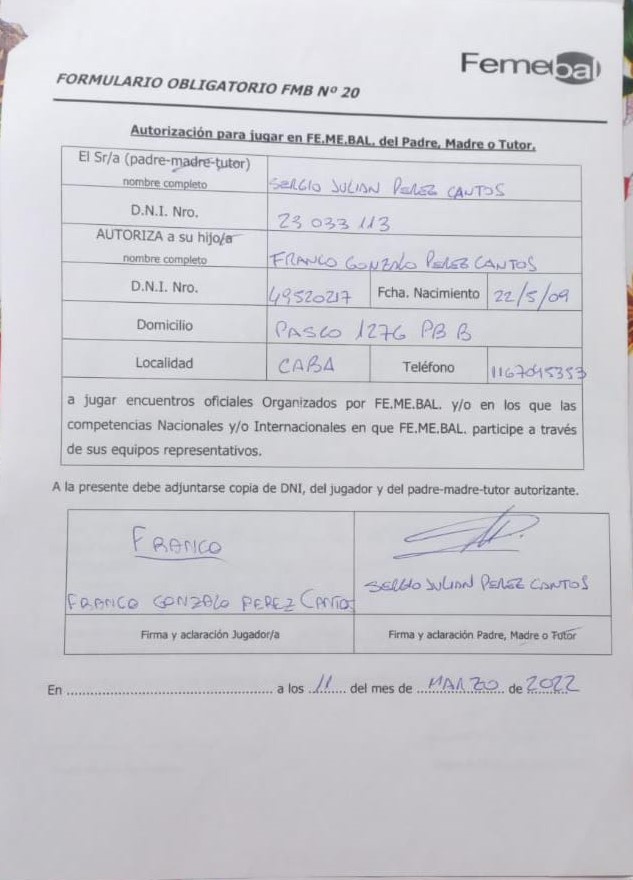 Femebal
FORMULARIO OBLIGATORIO FMB Nº 20
Autorización para jugar en FE.ME.BAL. del Padre, Madre o Tutor.
El Sr/a (padre-madre-tutor)
nombre completo
SERGIO JULIAN PEREZ CANTOS
D.N.I. Nro.
23 033 113
AUTORIZA a su hijo/a
nombre completo
FRANCO GONZALO PEREZ CANTOS
D.N.I. Nro.
49520217
Fcha. Nacimiento
22/5/09
Domicilio
PASCO 1276 PB B
Localidad
CABA
Teléfono
1167045353
a jugar encuentros oficiales Organizados por FE.ME.BAL. y/o en los que las
competencias Nacionales y/o Internacionales en que FE.ME.BAL. participe a través
de sus equipos representativos.
A la presente debe adjuntarse copia de DNI, del jugador y del padre-madre-tutor autorizante.
FRANCO
FRANCO GONZALO PEREZ CANTOS
Firma y aclaración Jugador/a
SERGIO JULIAN PEREZ CANTOS
Firma y aclaración Padre, Madre o Tutor
En ............................................... a los .11...... del mes de ..MARZO.. de 2022